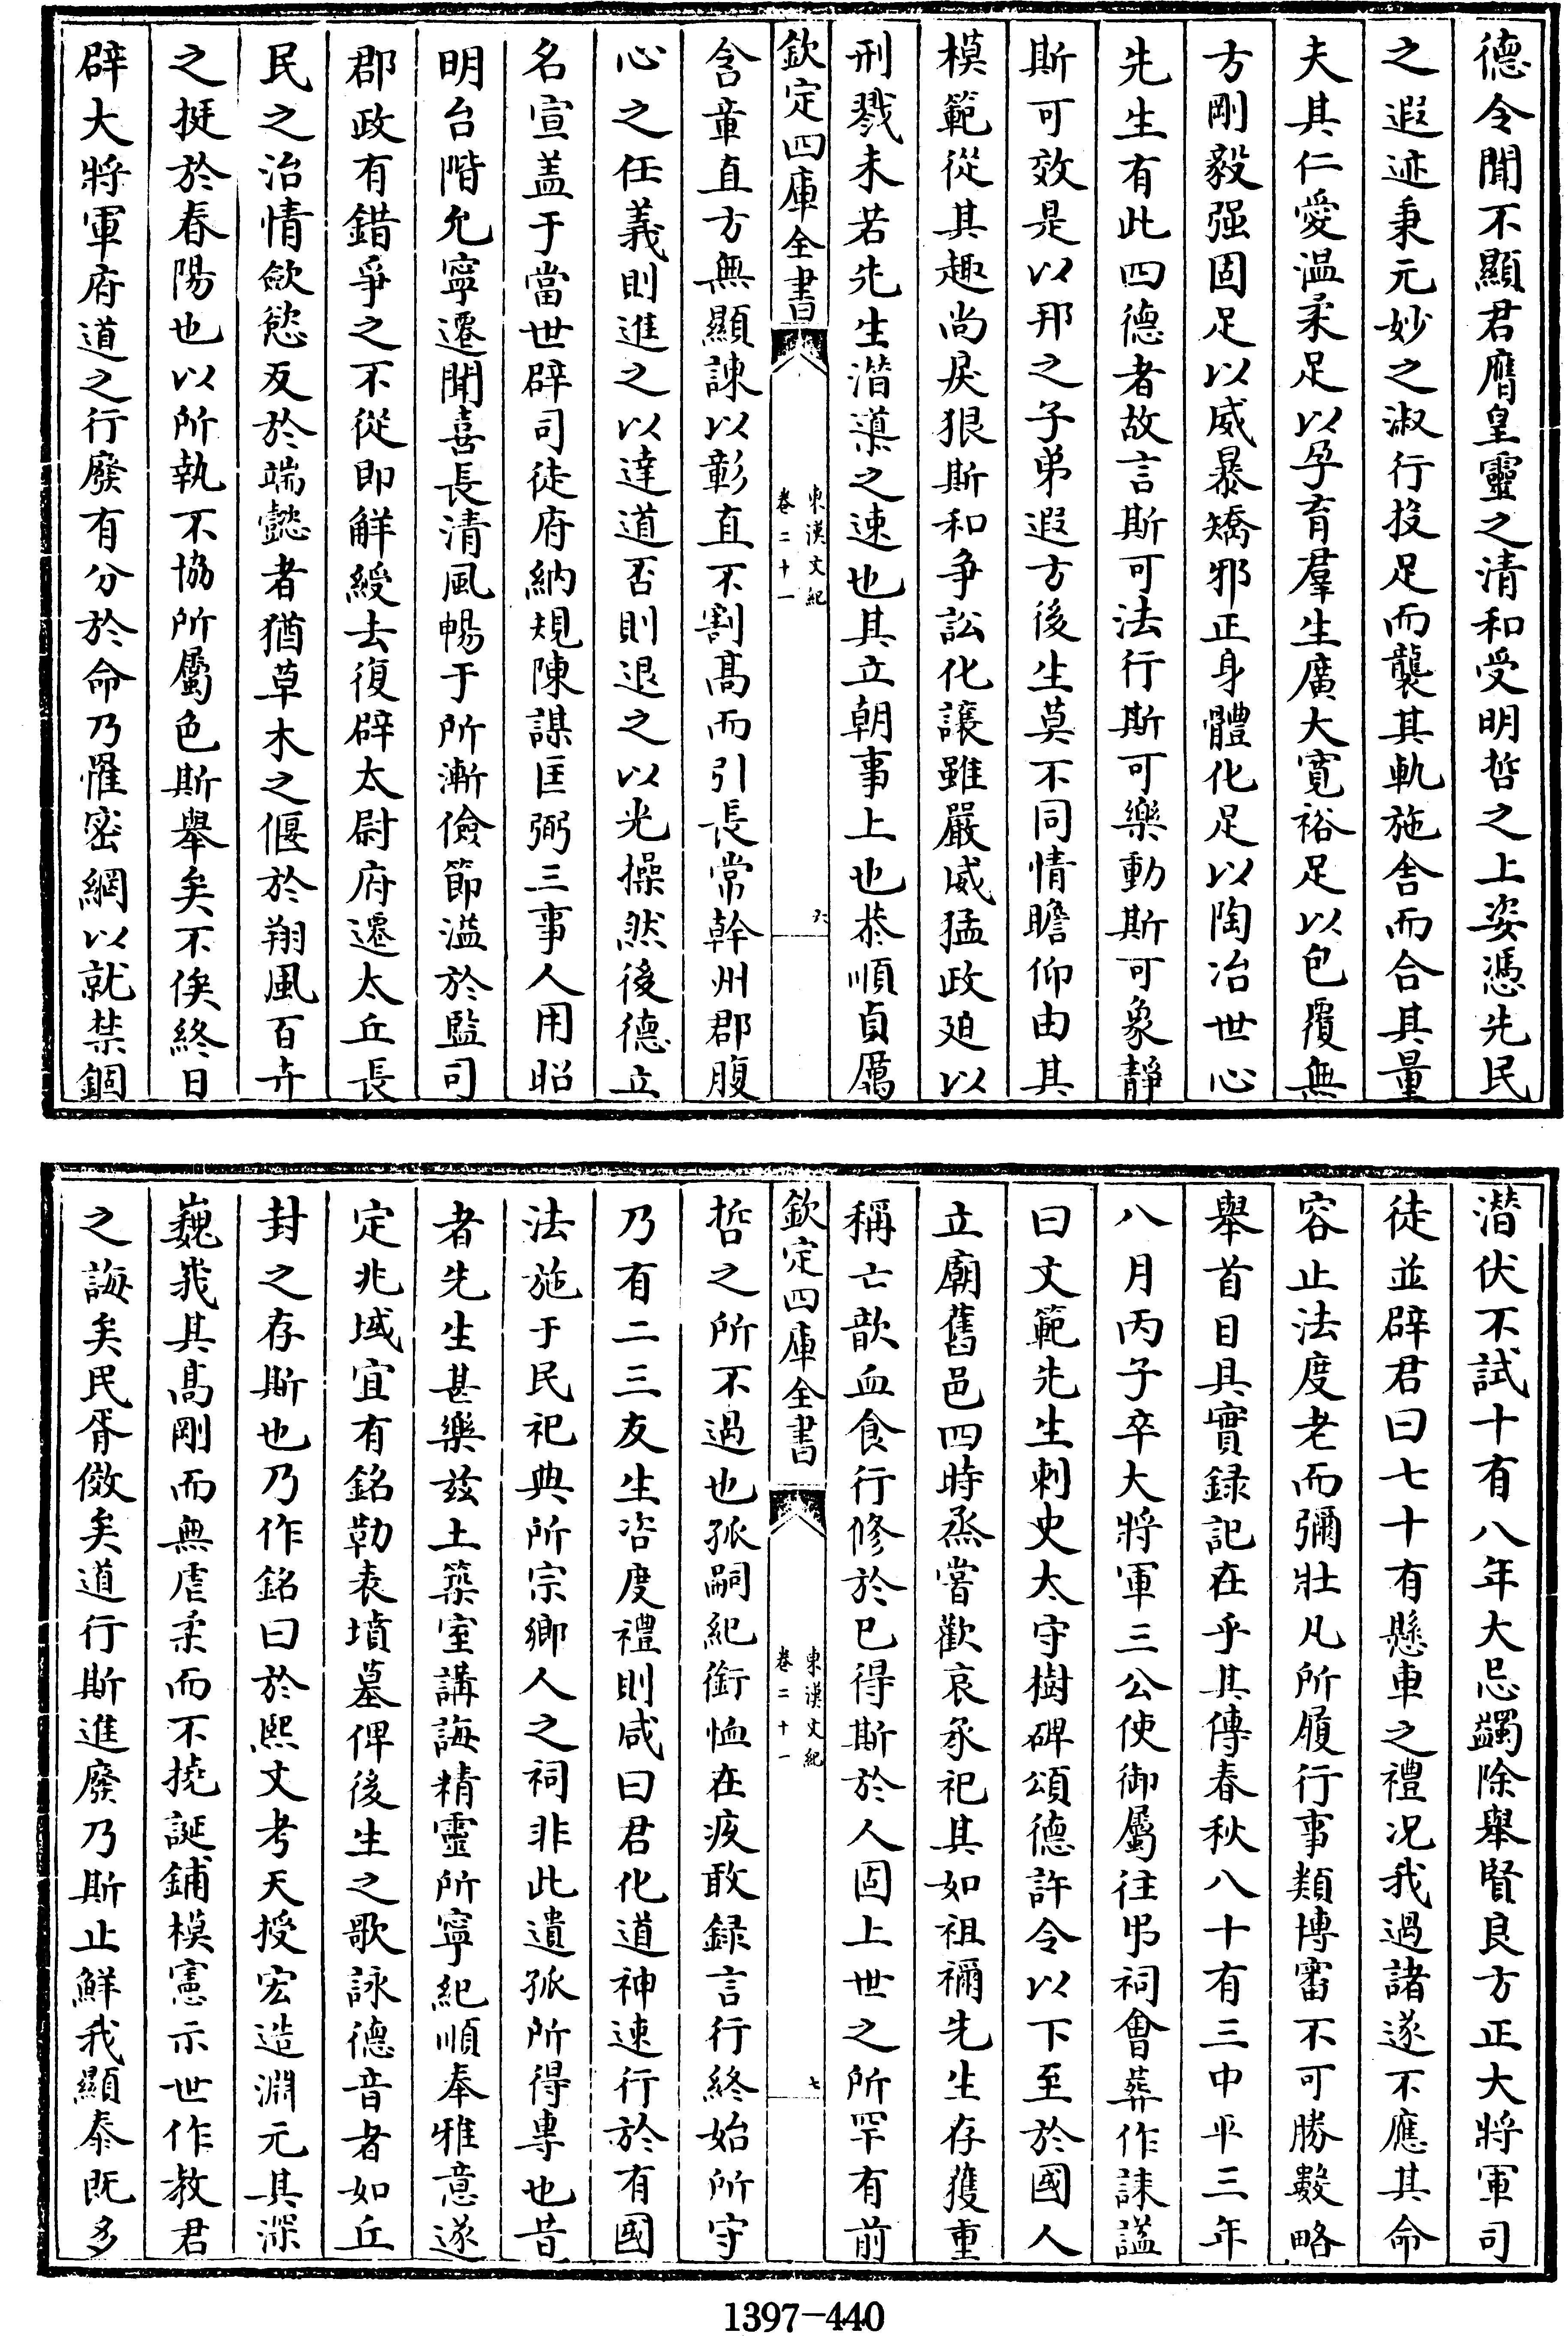 德令聞不顯君膺皇靈之清和受明哲之上姿憑先民
之遐迹秉元妙之淑行投足而襲其軌施舍而合其量
夫其仁愛温柔足以孕育羣生廣大寬裕足以包覆無
方剛毅强固足以威暴矯邪正身體化足以陶冶世心
先生有此四德者故言斯可法行斯可樂動斯可象靜
斯可效是以邦之子弟遐方後生莫不同情瞻仰由其
模範從其趣尚戾狠斯和争訟化讓雖嚴威猛政廹以
刑戮未若先生潛渠之速也其立朝事上也恭順貞厲
欽定四庫全書
東漢文紀
卷二十一
六
含章直方無顯諫以彰直不割髙而引長常幹州郡腹
心之任義則進之以達道否則退之以光操然後德立
名宣盖于當世辟司徒府納規陳謀匡弼三事人用昭
明台階允寧遷聞喜長清風暢于所漸儉節溢於監司
郡政有錯爭之不從即解綬去復辟太尉府遷太丘長
民之治情歛慾反於端懿者猶草木之偃於翔風百卉
之挺於春陽也以所執不協所屬色斯舉矣不俟終日
辟大將軍府道之行廢有分於命乃罹密網以就禁錮
潛伏不試十有八年大忌蠲除舉賢良方正大將軍司
徒並辟君曰七十有懸車之禮况我過諸遂不應其命
容止法度老而彌壯凡所履行事類博審不可勝數略
舉首目具實録記在乎其傳春秋八十有三中平三年
八月丙子卒大將軍三公使御屬往弔祠會葬作誄諡
曰文範先生刺史太守樹碑頌德許令以下至於國人
立廟舊邑四時烝嘗歡哀承祀其如祖禰先生存獲重
稱亡歆血食行修於已得斯於人固上世之所罕有前
欽定四庫全書
東漢文紀
卷二十一
七
哲之所不過也孤嗣紀銜恤在疚敢録言行終始所守
乃有二三友生咨度禮則咸曰君化道神速行於有國
法施于民祀典所宗鄉人之祠非此遺孤所得專也昔
者先生甚樂兹土築室講誨精靈所寧紀順奉雅意遂
定兆域宜有銘勒表墳墓俾後生之歌詠德音者如丘
封之存斯也乃作銘曰於熙文考天授宏造淵元其深
巍峩其髙剛而無虐柔而不撓誕鋪模憲示世作教君
之誨矣民胥傚矣道行斯進廢乃斯止鮮我顯泰既多
1397-440